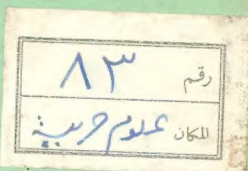 رقم ٨٣
المكان علوم حربية